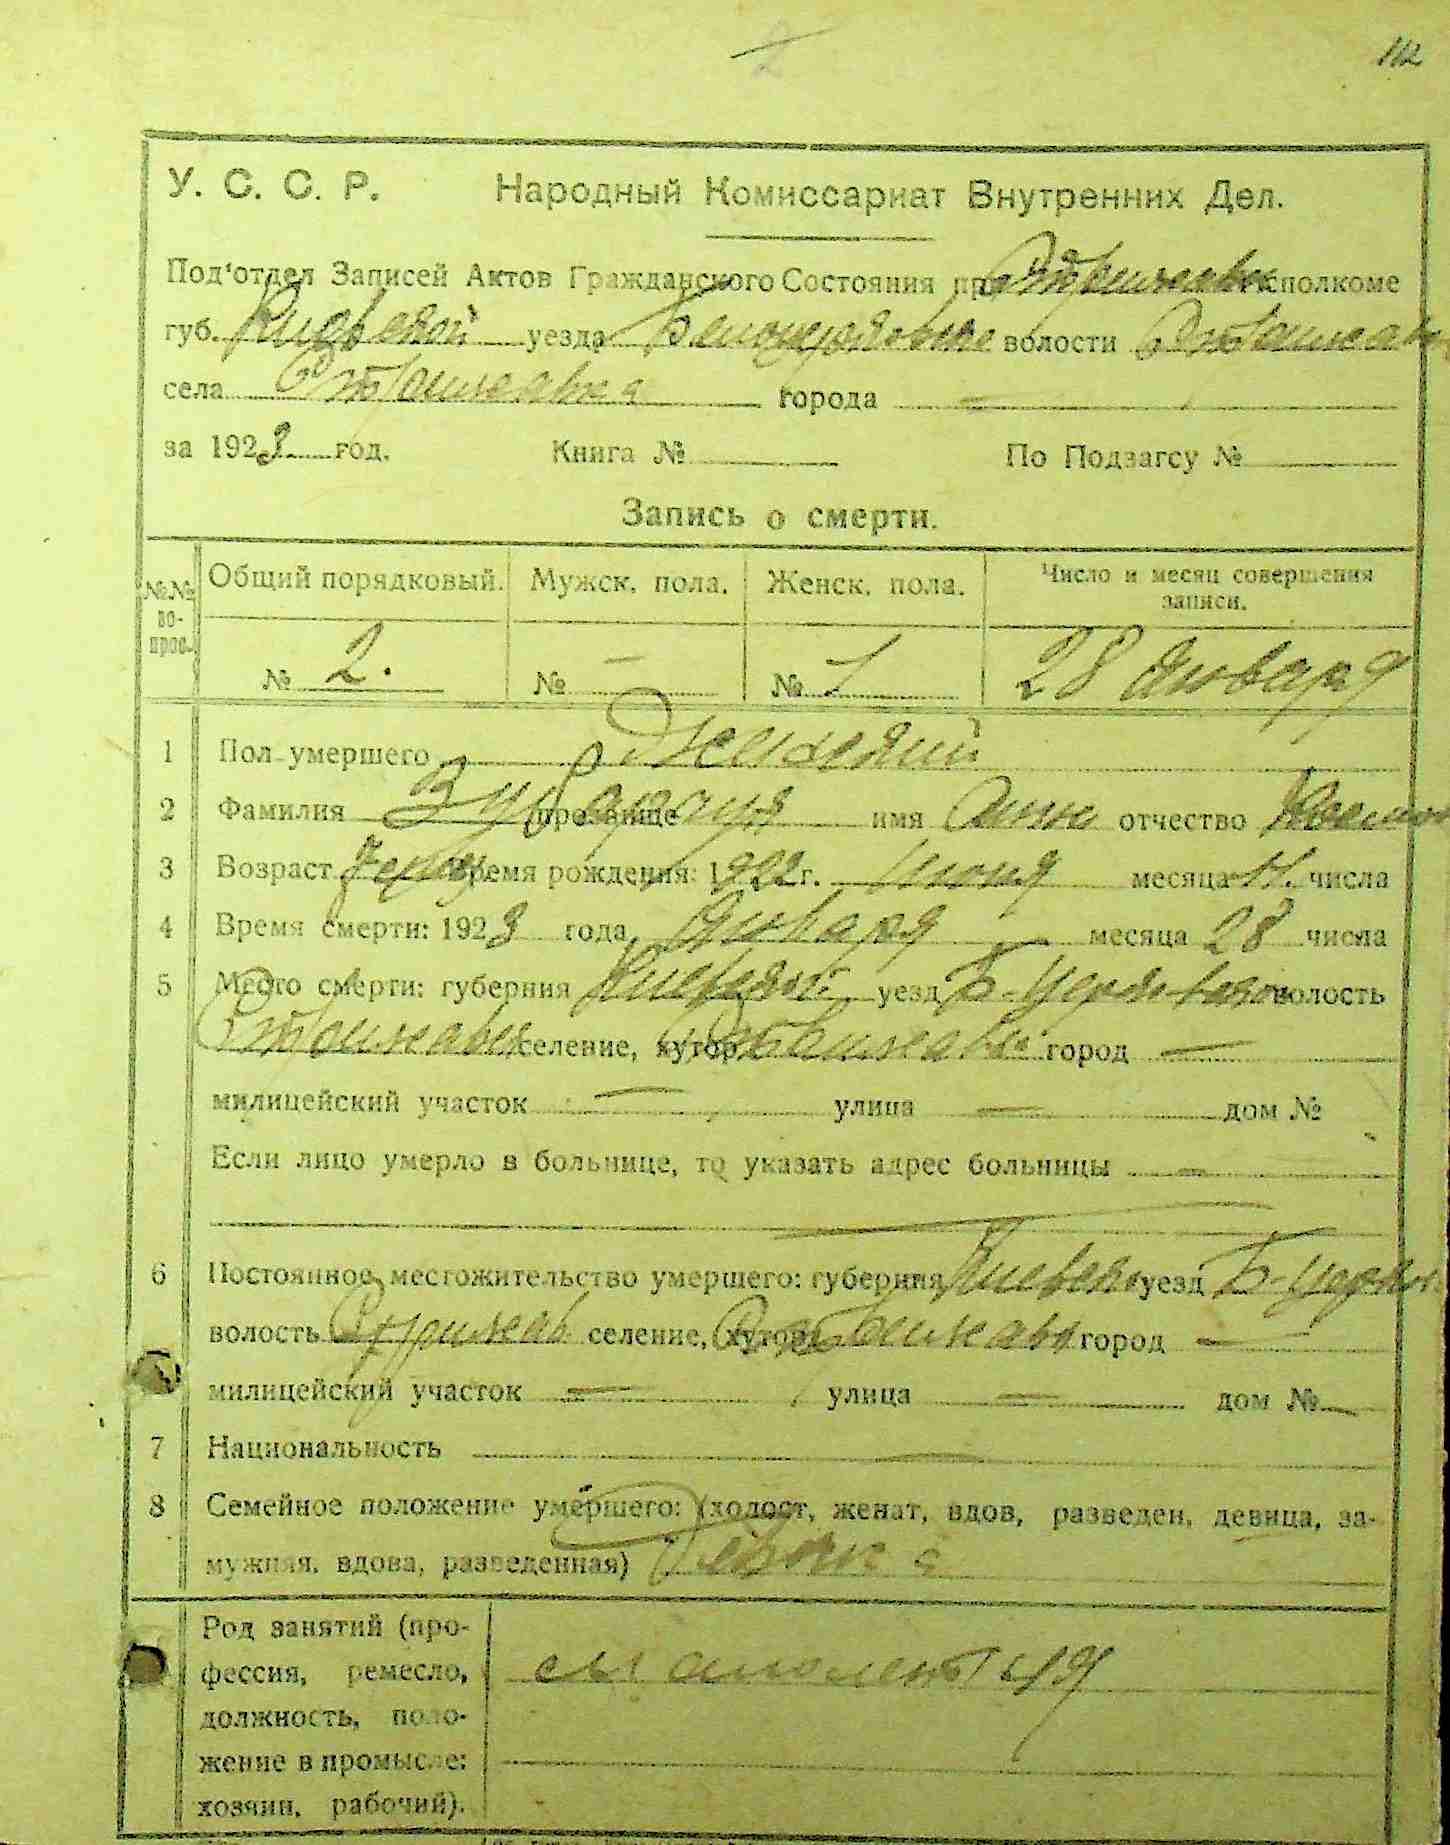 112
У. С. С. Р. Народный Комиссариат Внутренних Дел.
Под‘отдел Записей Актов Гражданского Состояния при исполкоме
губ. Киевской уезда Белоцерковского волости
села Стрижавка города —
за 1923 год. Книга № По Подзагсу №
Запись о смерти.
№№ во-прос. Общий порядковый. Мужск. пола. Женск. пола. Число и месяц совершения записи.
№ 2. № — № 1 28 января
1 Пол умершего Женский
2 Фамилия прозвище имя Анна отчество
3 Возраст время рождения: 1922 г. июня месяца 11. числа
4 Время смерти: 1923 года Января месяца 28 числа
5 Место смерти: губерния Киевской уезд Б-Церковской волость
селение, хутор город —
милицейский участок — улица — дом №
Если лицо умерло в больнице, то указать адрес больницы —
6 Постоянное местожительство умершего: губерния уезд
волость селение, хутор город —
милицейский участок — улица — дом № —
7 Национальность —
8 Семейное положение умершего: (холост, женат, вдов, разведен, девица, за-
мужняя, вдова, разведенная) Девочка
Род занятий (про-
фессия, ремесло,
должность, поло-
жение в промысле:
хозяин, рабочий).